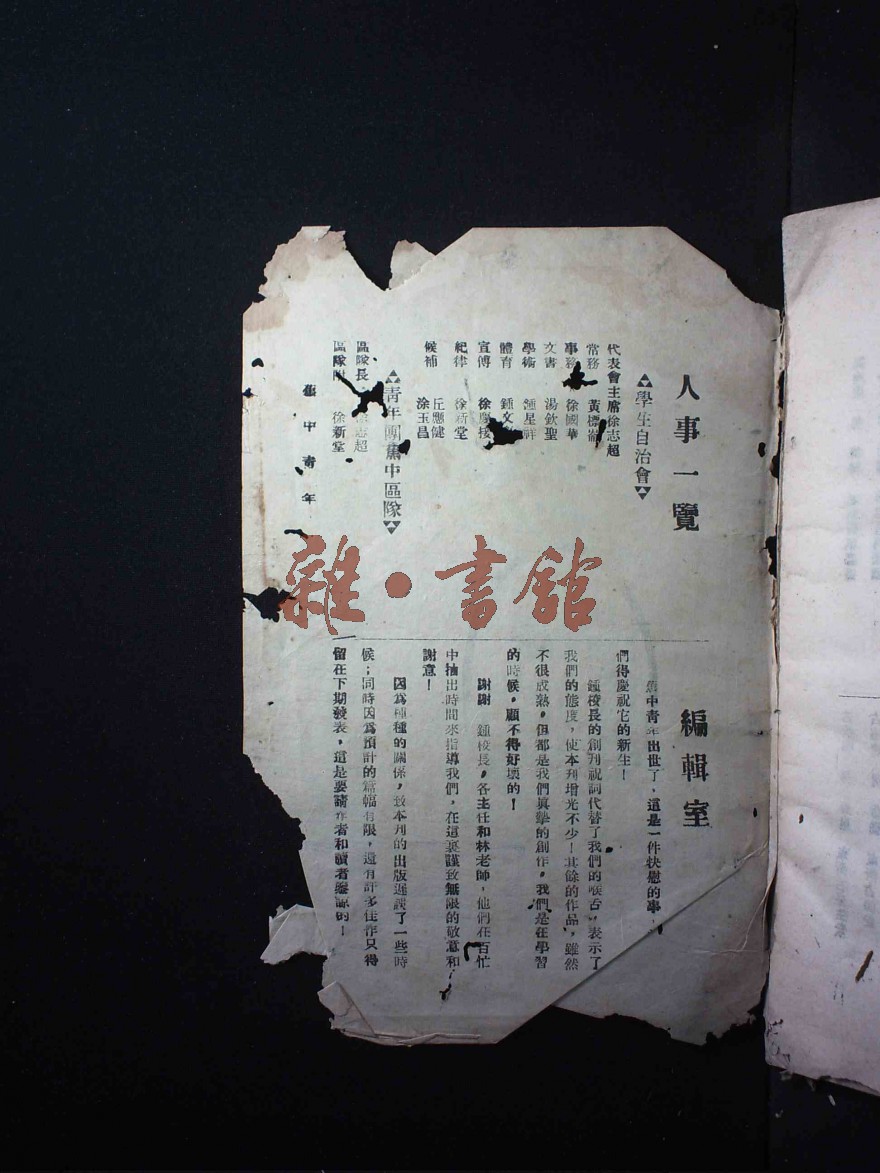 人事一覽
△學生自治會△
代表會主席徐志超
常務 黃標
事務 徐國華
文書 湯欽聖
學術 鍾星祥
體育 鍾文
宣傳 徐
紀律 徐新堂
候補 丘懸健
涂玉昌
△青年團蕉中區隊△
區隊長 志超
區隊附 徐新堂
蕉中青年
編輯室
蕉中青年出世了，這是一件快慰的事，
們得慶祝它的新生！
鍾校長的創刊祝詞代替了我們的喉舌，表示了
我們的態度，使本刊增光不少！其餘的作品，雖然
不很成熟，但都是我們真摯的創作，我們是在學習
的時候，顧不得好壞的！
謝謝 鍾校長，各主任和林老師，他們在百忙
中抽出時間來指導我們，在這裏謹致無限的敬意和
謝意！
因為種種的關係，致本刊的出版遲誤了一些時
候；同時因為預計的篇幅有限，還有許多佳作只得
留在下期發表，這是要請作者和讀者鑒諒的！
雜·書館